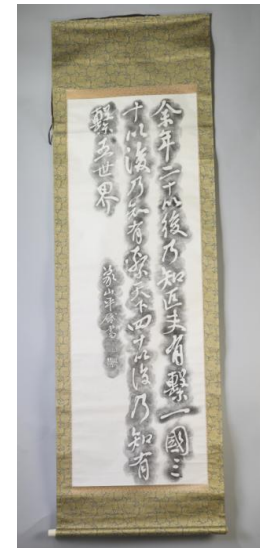 余年二十以後乃知匹夫有繋一國三
十以後乃知有繋天下四十以後乃知有
繋五世界
象山平